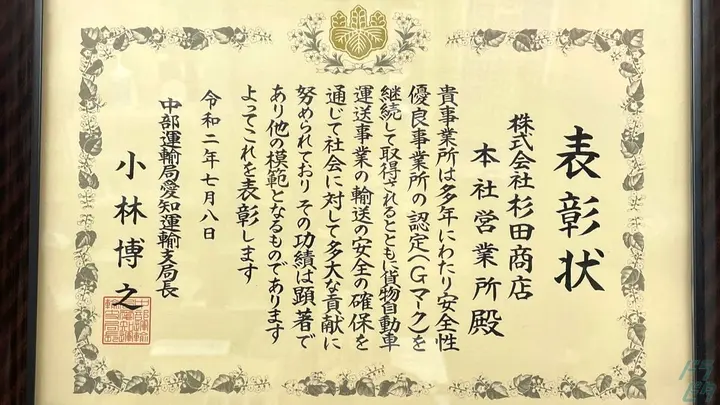 表彰状
株式会社杉田商店
本社営業所殿
貴事業所は多年にわたり安全性
優良事業所の認定(Gマーク)を
継続して取得されるとともに貨物自動車
運送事業の輸送の安全の確保を
通じて社会に対して多大な貢献に
努められており その功績は顕著で
あり他の模範となるものであります
よってこれを表彰します
令和二年七月八日
中部運輸局愛知運輸支局長
小林博之